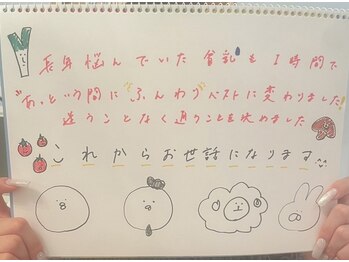 長年悩んでいた貧乳も1時間で
"あっという間にふんわりバストに変わりました!
迷うことなく通うことを決めました
これからお世話になります